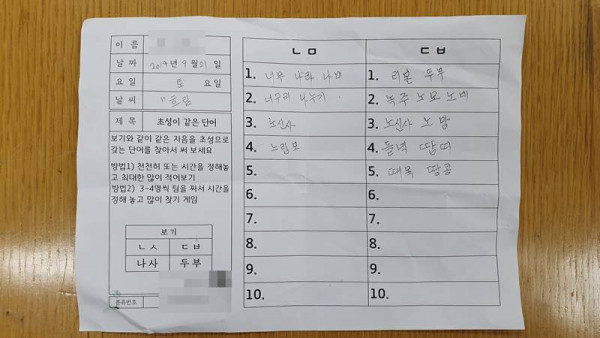 이 름
날 짜 2019년 9월 21일
요 일 토 요일
날 씨 흐림
제 목 초성이 같은 단어
보기와 같이 같은 자음을 초성으로
갖는 단어를 찾아서 써 보세요
방법1) 천천히 또는 시간을 정해놓
고 최대한 많이 적어보기
방법2) 3-4명씩 팀을 짜서 시간을
정해 놓고 많이 찾기 게임
보기
ㄴㅅ ㄷㅂ
나사 두부
분류번호
ㄴㅁ ㄷㅂ
1. 너무 나라 나비
2. 너구리
3. 노신사
4. 느림보
5.
6.
7.
8.
9.
10.
1. 리본 두부
2. 녹두 노모 노래
3. 노신사 노망
4. 들녘
5. 때목 땅콩
6.
7.
8.
9.
10.